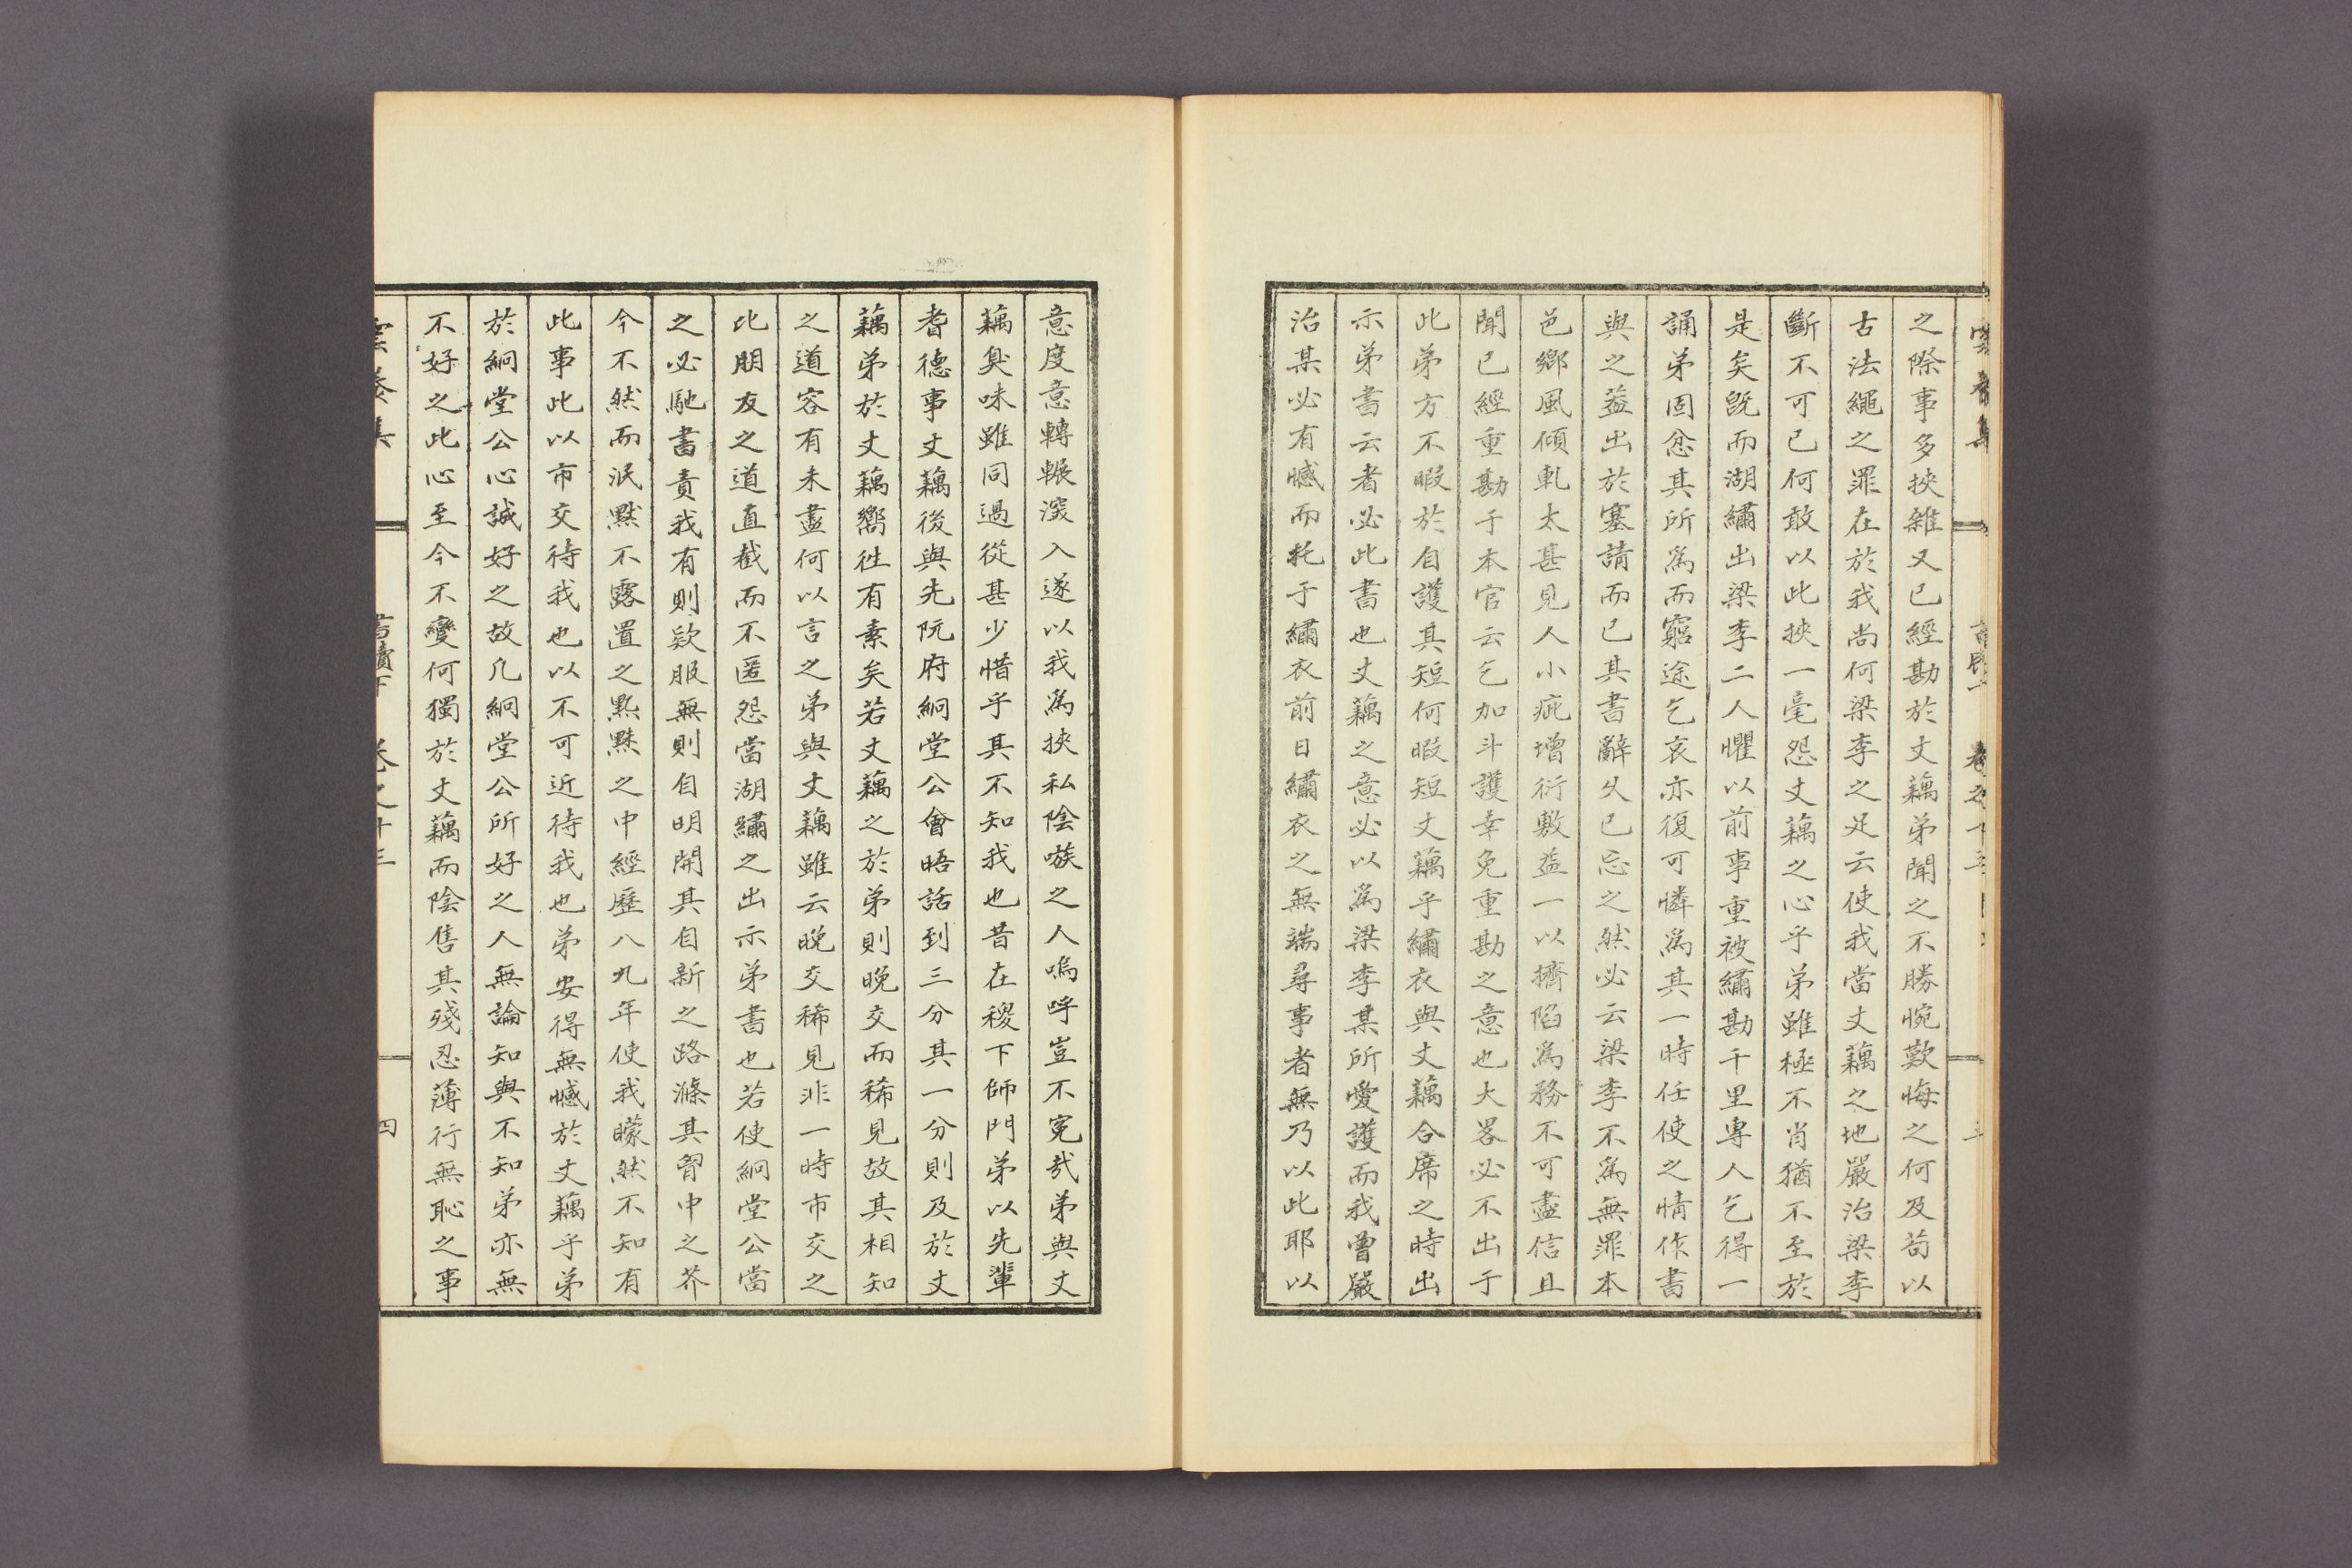 之際事多挾雜又已經勘於丈藕弟聞之不勝惋歎悔之何及苟以
古法繩之罪在於我尚何梁李之足云使我當丈藕之地嚴治梁李
斷不可已何敢以此挾一毫怨丈藕之心乎弟雖極不肖猶不至於
是矣旣而湖繡出梁李二人懼以前事重被繡勘千里專人乞得一
誦弟固忿其所爲而窮途乞哀亦復可憐爲其一時任使之情作書
與之葢出於塞請而已其書辭久已忘之然必云梁李不爲無罪本
邑鄉風傾軋太甚見人小疵增衍敷益一以擠陷爲務不可盡信且
聞已經重勘于本官云乞加斗護幸免重勘之意也大畧必不出于
此弟方不暇於自護其短何暇短丈藕乎繡衣與丈藕合席之時出
示弟書云者必此書也丈藕之意必以爲梁李某所愛護而我曾嚴
治某必有憾而托于繡衣前日繡衣之無端尋事者無乃以此耶以
意度意轉輾深入遂以我爲挾私陰嗾之人嗚呼豈不冤哉弟與丈
藕臭味雖同過從甚少惜乎其不知我也昔在稷下師門弟以先輩
耆德事丈藕後與先阮府絅堂公會晤話到三分其一分則及於丈
藕弟於丈藕嚮徃有素矣若丈藕之於弟則晚交而稀見故其相知
之道容有未盡何以言之弟與丈藕雖云晚交稀見非一時市交之
比朋友之道直截而不匿怨當湖繡之出示弟書也若使絅堂公當
之必馳書責我有則欵服無則自明開其自新之路滌其胷中之芥
今不然而泯默不露置之點黙之中經歷八九年使我矇然不知有
此事此以市交待我也以不可近待我也弟安得無憾於丈藕乎弟
於絅堂公心誠好之故凡絅堂公所好之人無論知與不知弟亦無
不好之此心至今不變何獨於丈藕而陰售其殘忍薄行無恥之事
書牘下 卷之十三 四